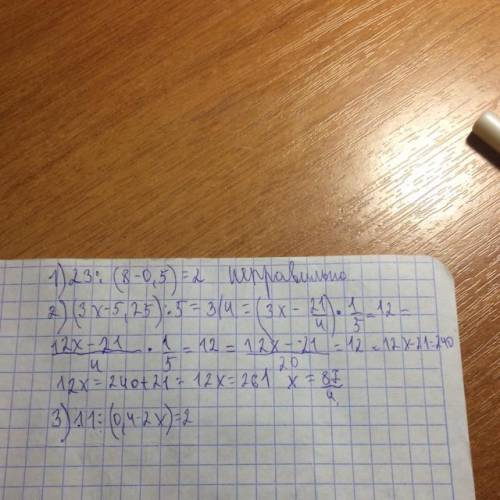 1) 23: (8-0,5)=2 неправильно
2) (3x-5,25):5=3/4 = (3x - 21/4) · 1/5 = 12 =
12x-21/4 · 1/5 = 12 = 12x-21/20 = 12 = 12x-21=240
12x=240+21 = 12x=261 x = 87/4
3) 11:(0,4-2x)=2